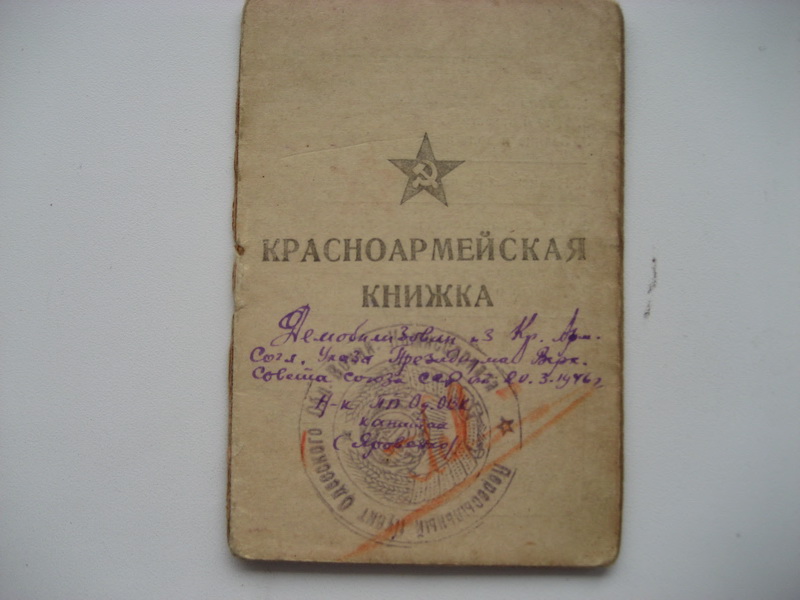 КРАСНОАРМЕЙСКАЯ
КНИЖКА
Демобилизован из Кр. Арм.
Согл. Указа Президиума Верх.
Совета союза ССР от 20.3.1946 г.
Н-к
капитан
Пересыльный Пункт Одесского